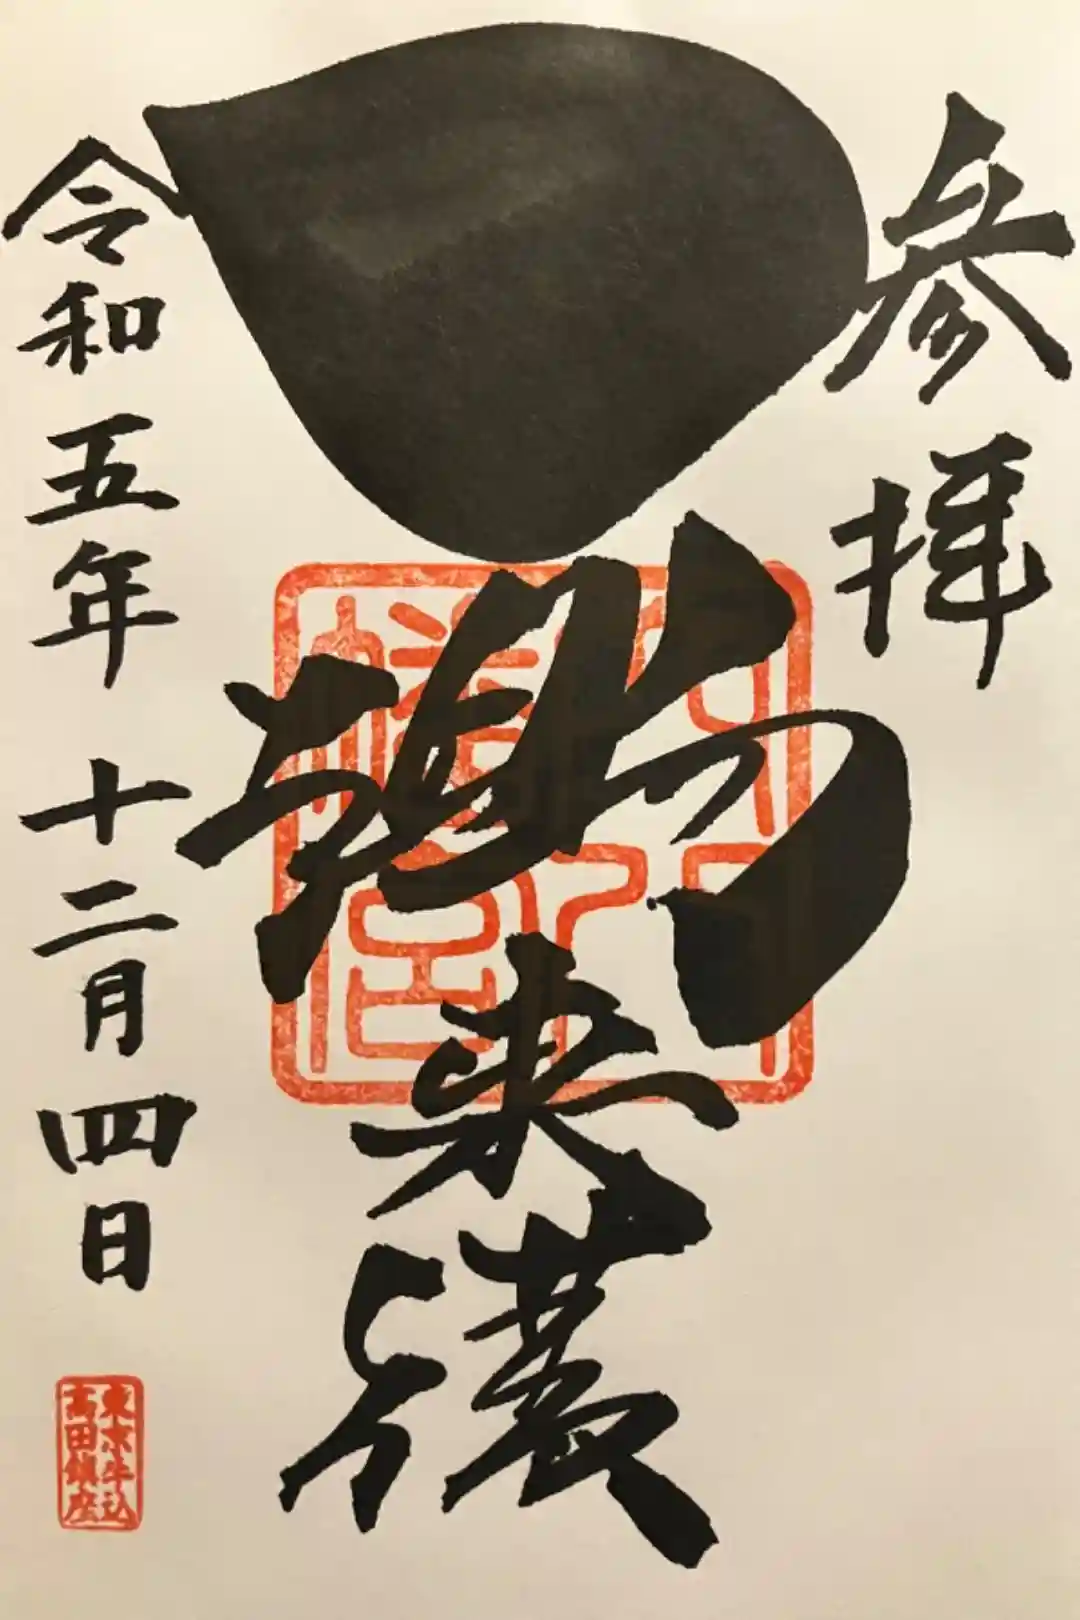 参拝
一陽来復
穴八
幡宮
令和五年 十二月四日
東京牛込
高田鎮座